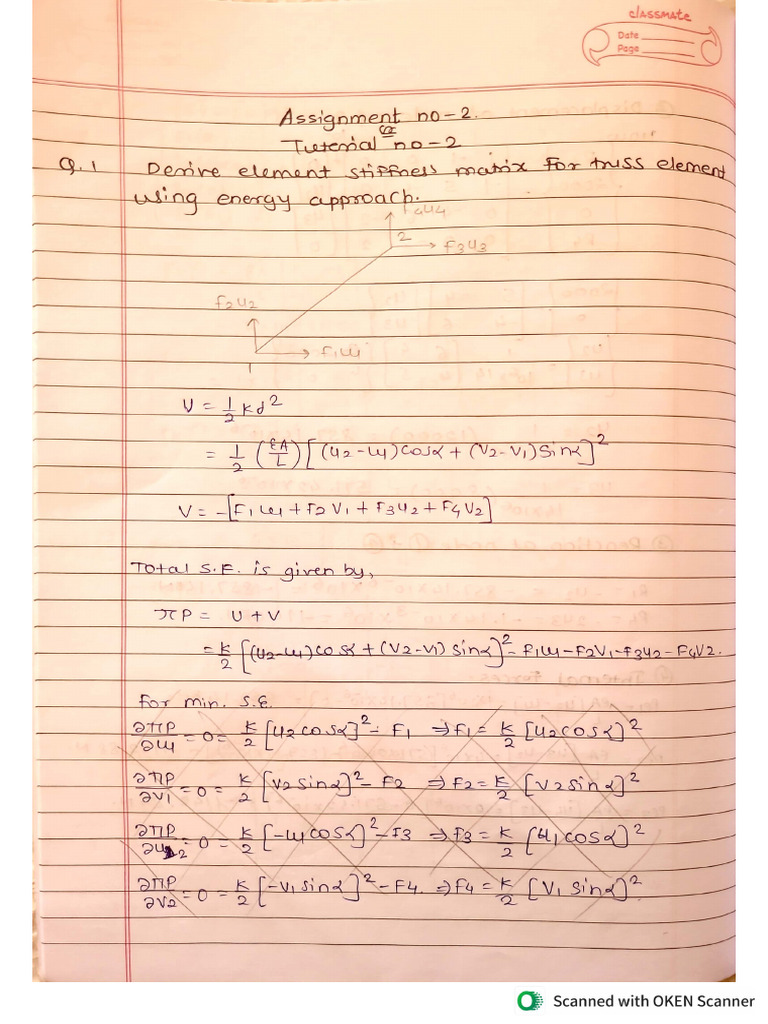 classmate
Date
Page
Assignment no-2.
OR
Tutorial no-2
Q.1 Derive element stiffness matrix for truss element
using energy approach.
F4u4
2
F3u3
F2u2
F1u1
1
U = 1/2 kd²
= 1/2 (EA/L) [(u2-u1)cosα + (V2-V1)Sinα]²
V = -[F1u1 + F2V1 + F3u2 + F4V2]
Total S.E. is given by,
πP = U + V
= K/2 [(u2-u1)cosα + (V2-V1) sinα]² - F1u1 - F2V1 - F3u2 - F4V2.
for min. S.E.
∂πP/∂u1 = 0 = K/2 [u2cosα]² - F1 ⇒ F1 = K/2 [u2cosα]²
∂πP/∂V1 = 0 = K/2 [V2sinα]² - F2 ⇒ F2 = K/2 [V2sinα]²
∂πP/∂u2 = 0 = K/2 [-u1cosα]² - F3 ⇒ F3 = K/2 [u1cosα]²
∂πP/∂V2 = 0 = K/2 [-V1sinα]² - F4. ⇒ F4 = K/2 [V1 sinα]²
Scanned with OKEN Scanner